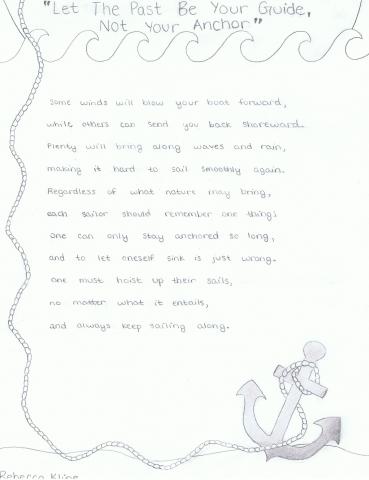 "Let The Past Be Your Guide,
Not Your Anchor"
Some winds will blow your boat forward,
while others can send you back shoreward.
Plenty will bring along waves and rain,
making it hard to sail smoothly again.
Regardless of what nature may bring,
each sailor should remember one thing:
one can only stay anchored so long,
and to let oneself sink is just wrong.
one must hoist up their sails,
no matter what it entails,
and always keep sailing along.
Rebecca Kline